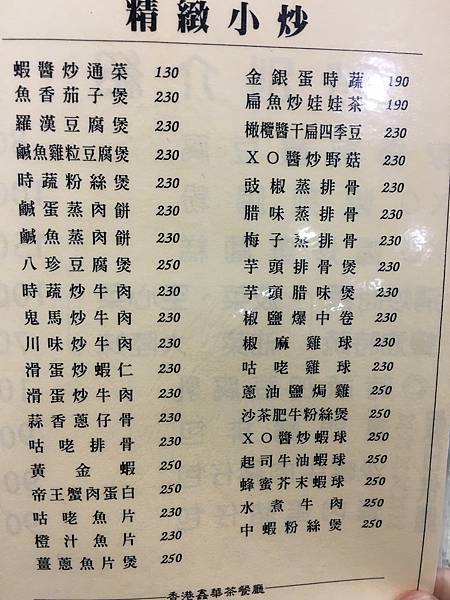 精緻小炒
蝦醬炒通菜 130
魚香茄子煲 230
羅漢豆腐煲 230
鹹魚雞粒豆腐煲 230
時蔬粉絲煲 230
鹹蛋蒸肉餅 230
鹹魚蒸肉餅 230
八珍豆腐煲 250
時蔬炒牛肉 230
鬼馬炒牛肉 230
川味炒牛肉 230
滑蛋炒蝦仁 230
滑蛋炒牛肉 230
蒜香蔥仔骨 230
咕咾排骨 230
黃金蝦 250
帝王蟹肉蛋白 250
咕咾魚片 230
橙汁魚片 230
薑蔥魚片煲 250
金銀蛋時蔬 190
扁魚炒娃娃菜 190
橄欖醬干扁四季豆 230
XO醬炒野菇 230
豉椒蒸排骨 230
腊味蒸排骨 230
梅子蒸排骨 230
芋頭排骨煲 230
芋頭腊味煲 230
椒鹽爆中卷 230
椒麻雞球 230
咕咾雞球 230
蔥油鹽焗雞 250
沙茶肥牛粉絲煲 250
XO醬炒蝦球 250
起司牛油蝦球 250
蜂蜜芥末蝦球 250
水煮牛肉 250
中蝦粉絲煲 250
香港鑫華茶餐廳